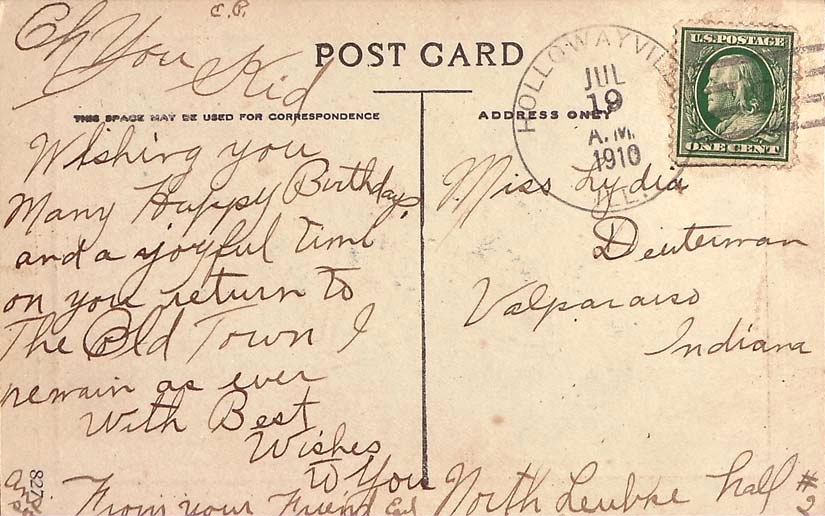 C.P.
Oh You
Kid
POST CARD
THIS SPACE MAY BE USED FOR CORRESPONDENCE
Wishing you
Many Happy Birthdays,
and a joyful time
on you return to
The Old Town I
remain as ever
With Best
Wishes
to You
From your Friend
ADDRESS ONLY
HOLLOWAYVILLE
JUL
19
A.M.
1910
ILL.
U.S. POSTAGE
ONE CENT
Miss Lydia
Deuterman
Valparaiso
Indiana
North Leubke hall #2